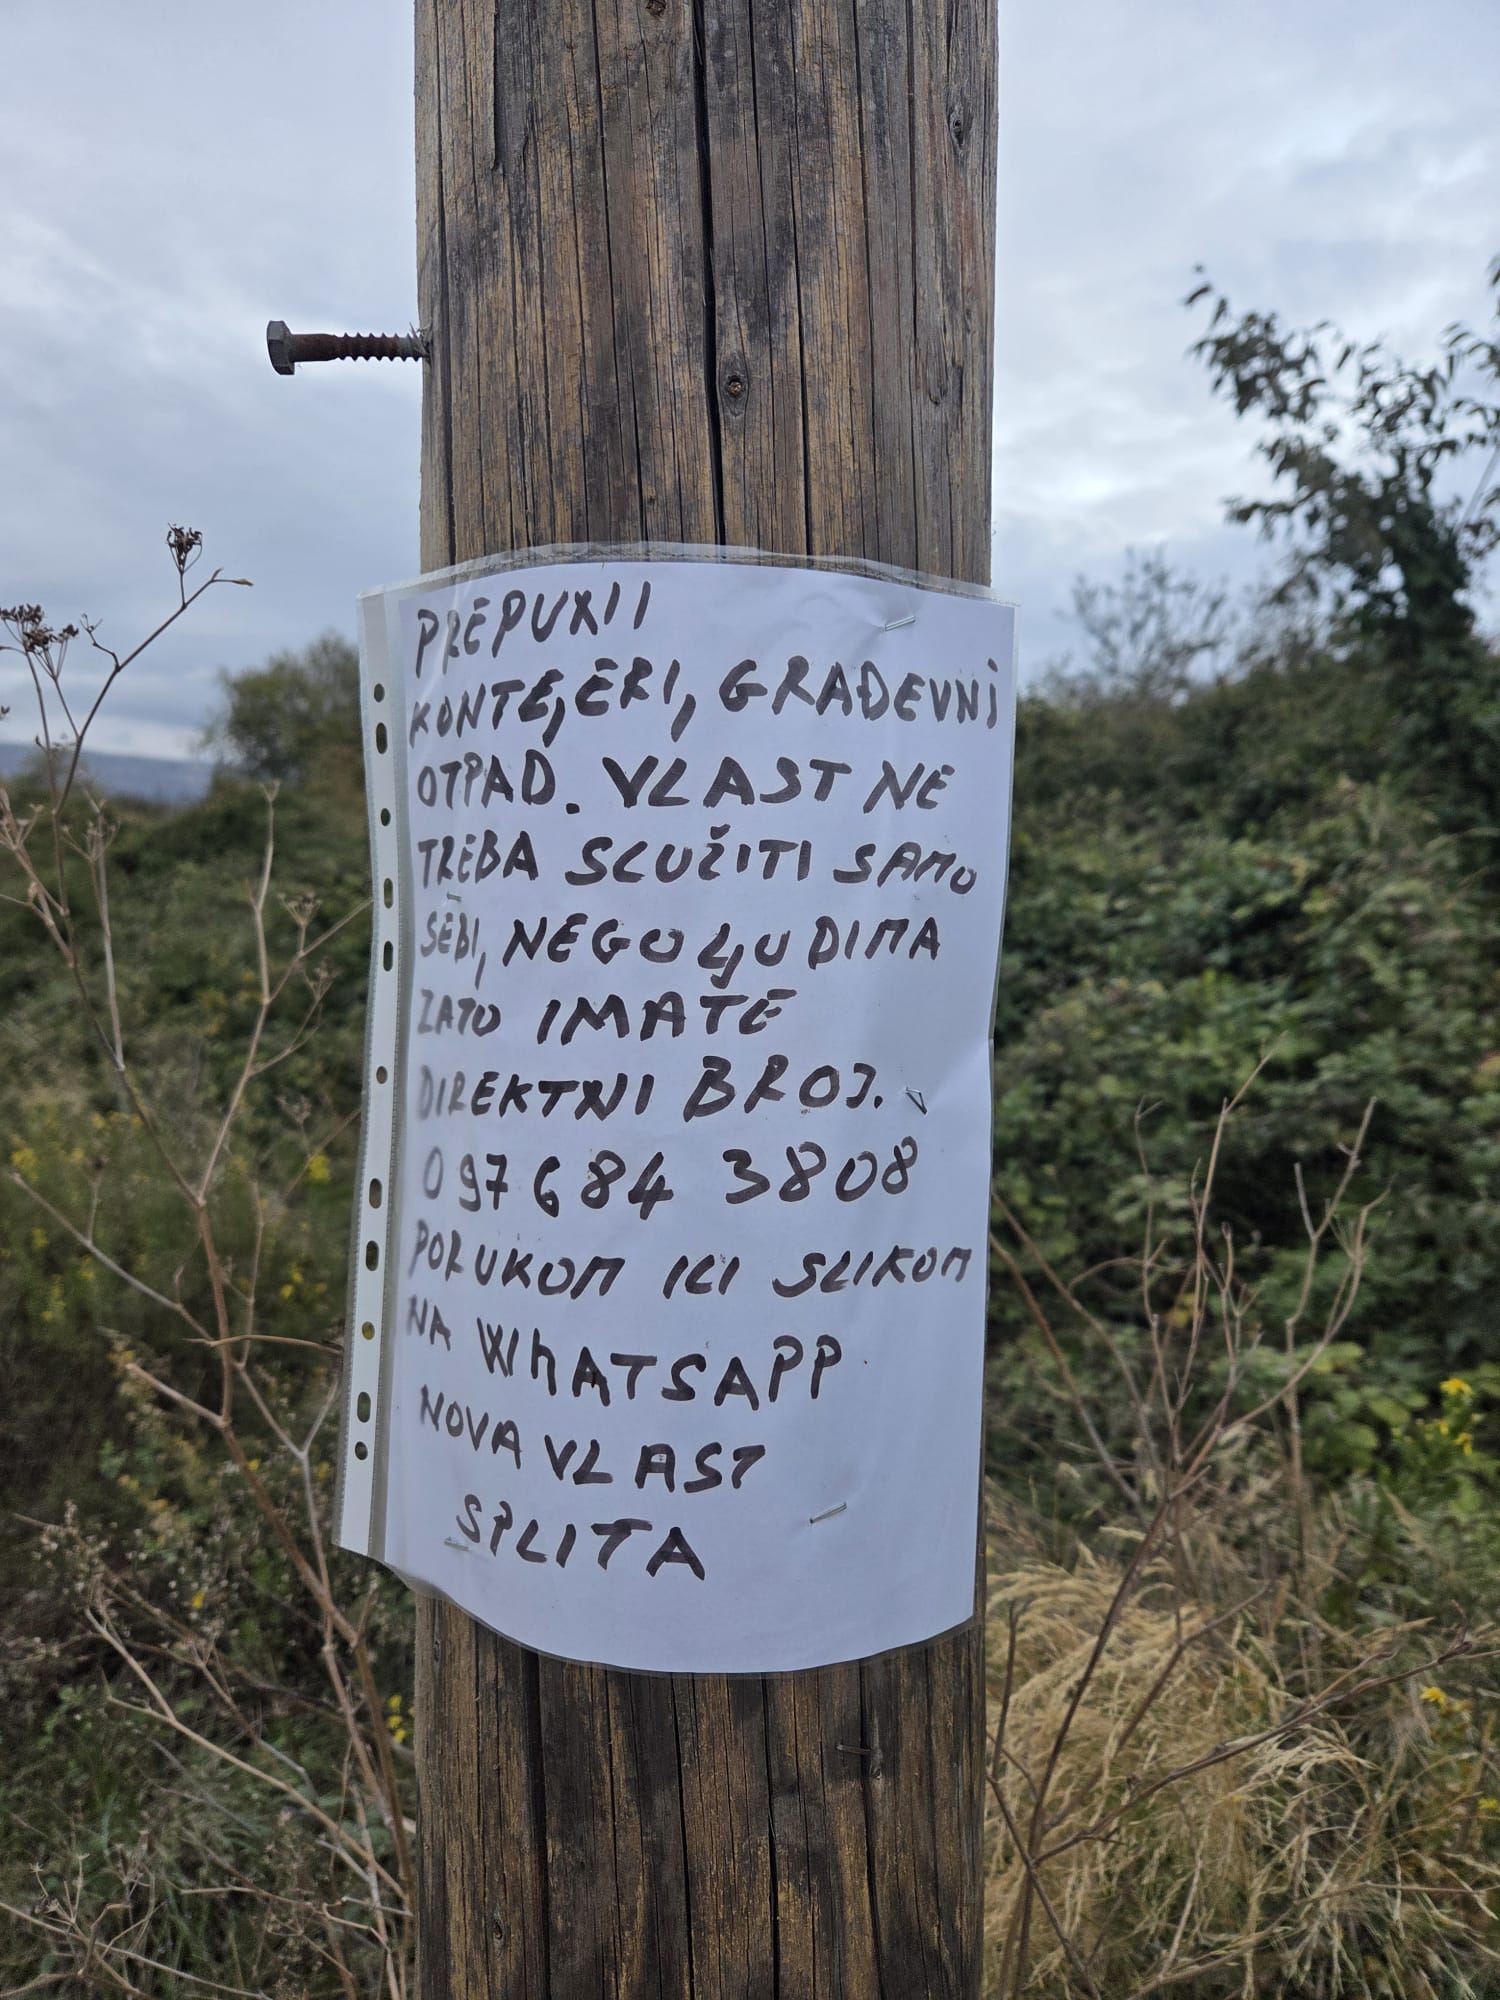 PREPUNI
KONTEJERI, GRAĐEVNI
OTPAD. VLAST NE
TREBA SLUŽITI SAMO
SEBI, NEGO LJUDIMA
ZATO IMATE
DIREKTNI BROJ.
097 684 3808
PORUKOM ILI SLIKOM
NA WHATSAPP
NOVA VLAST
SPLITA